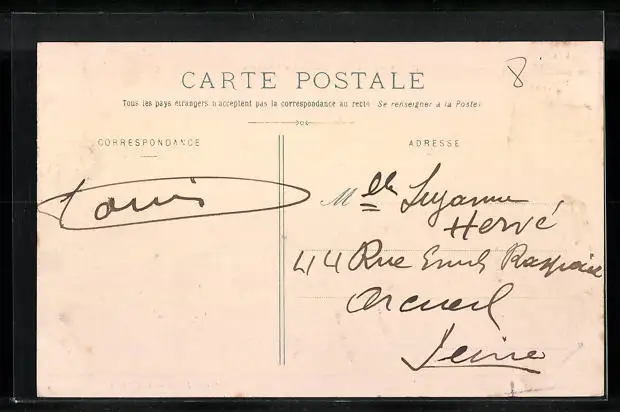 8
CARTE POSTALE
Tous les pays étrangers n'acceptent pas la correspondance au recto (Se renseigner à la Poste)
CORRESPONDANCE
ADRESSE
Louis
Mlle Suzanne
Hervé
44 Rue Emile Raspail
Arcueil
Seine